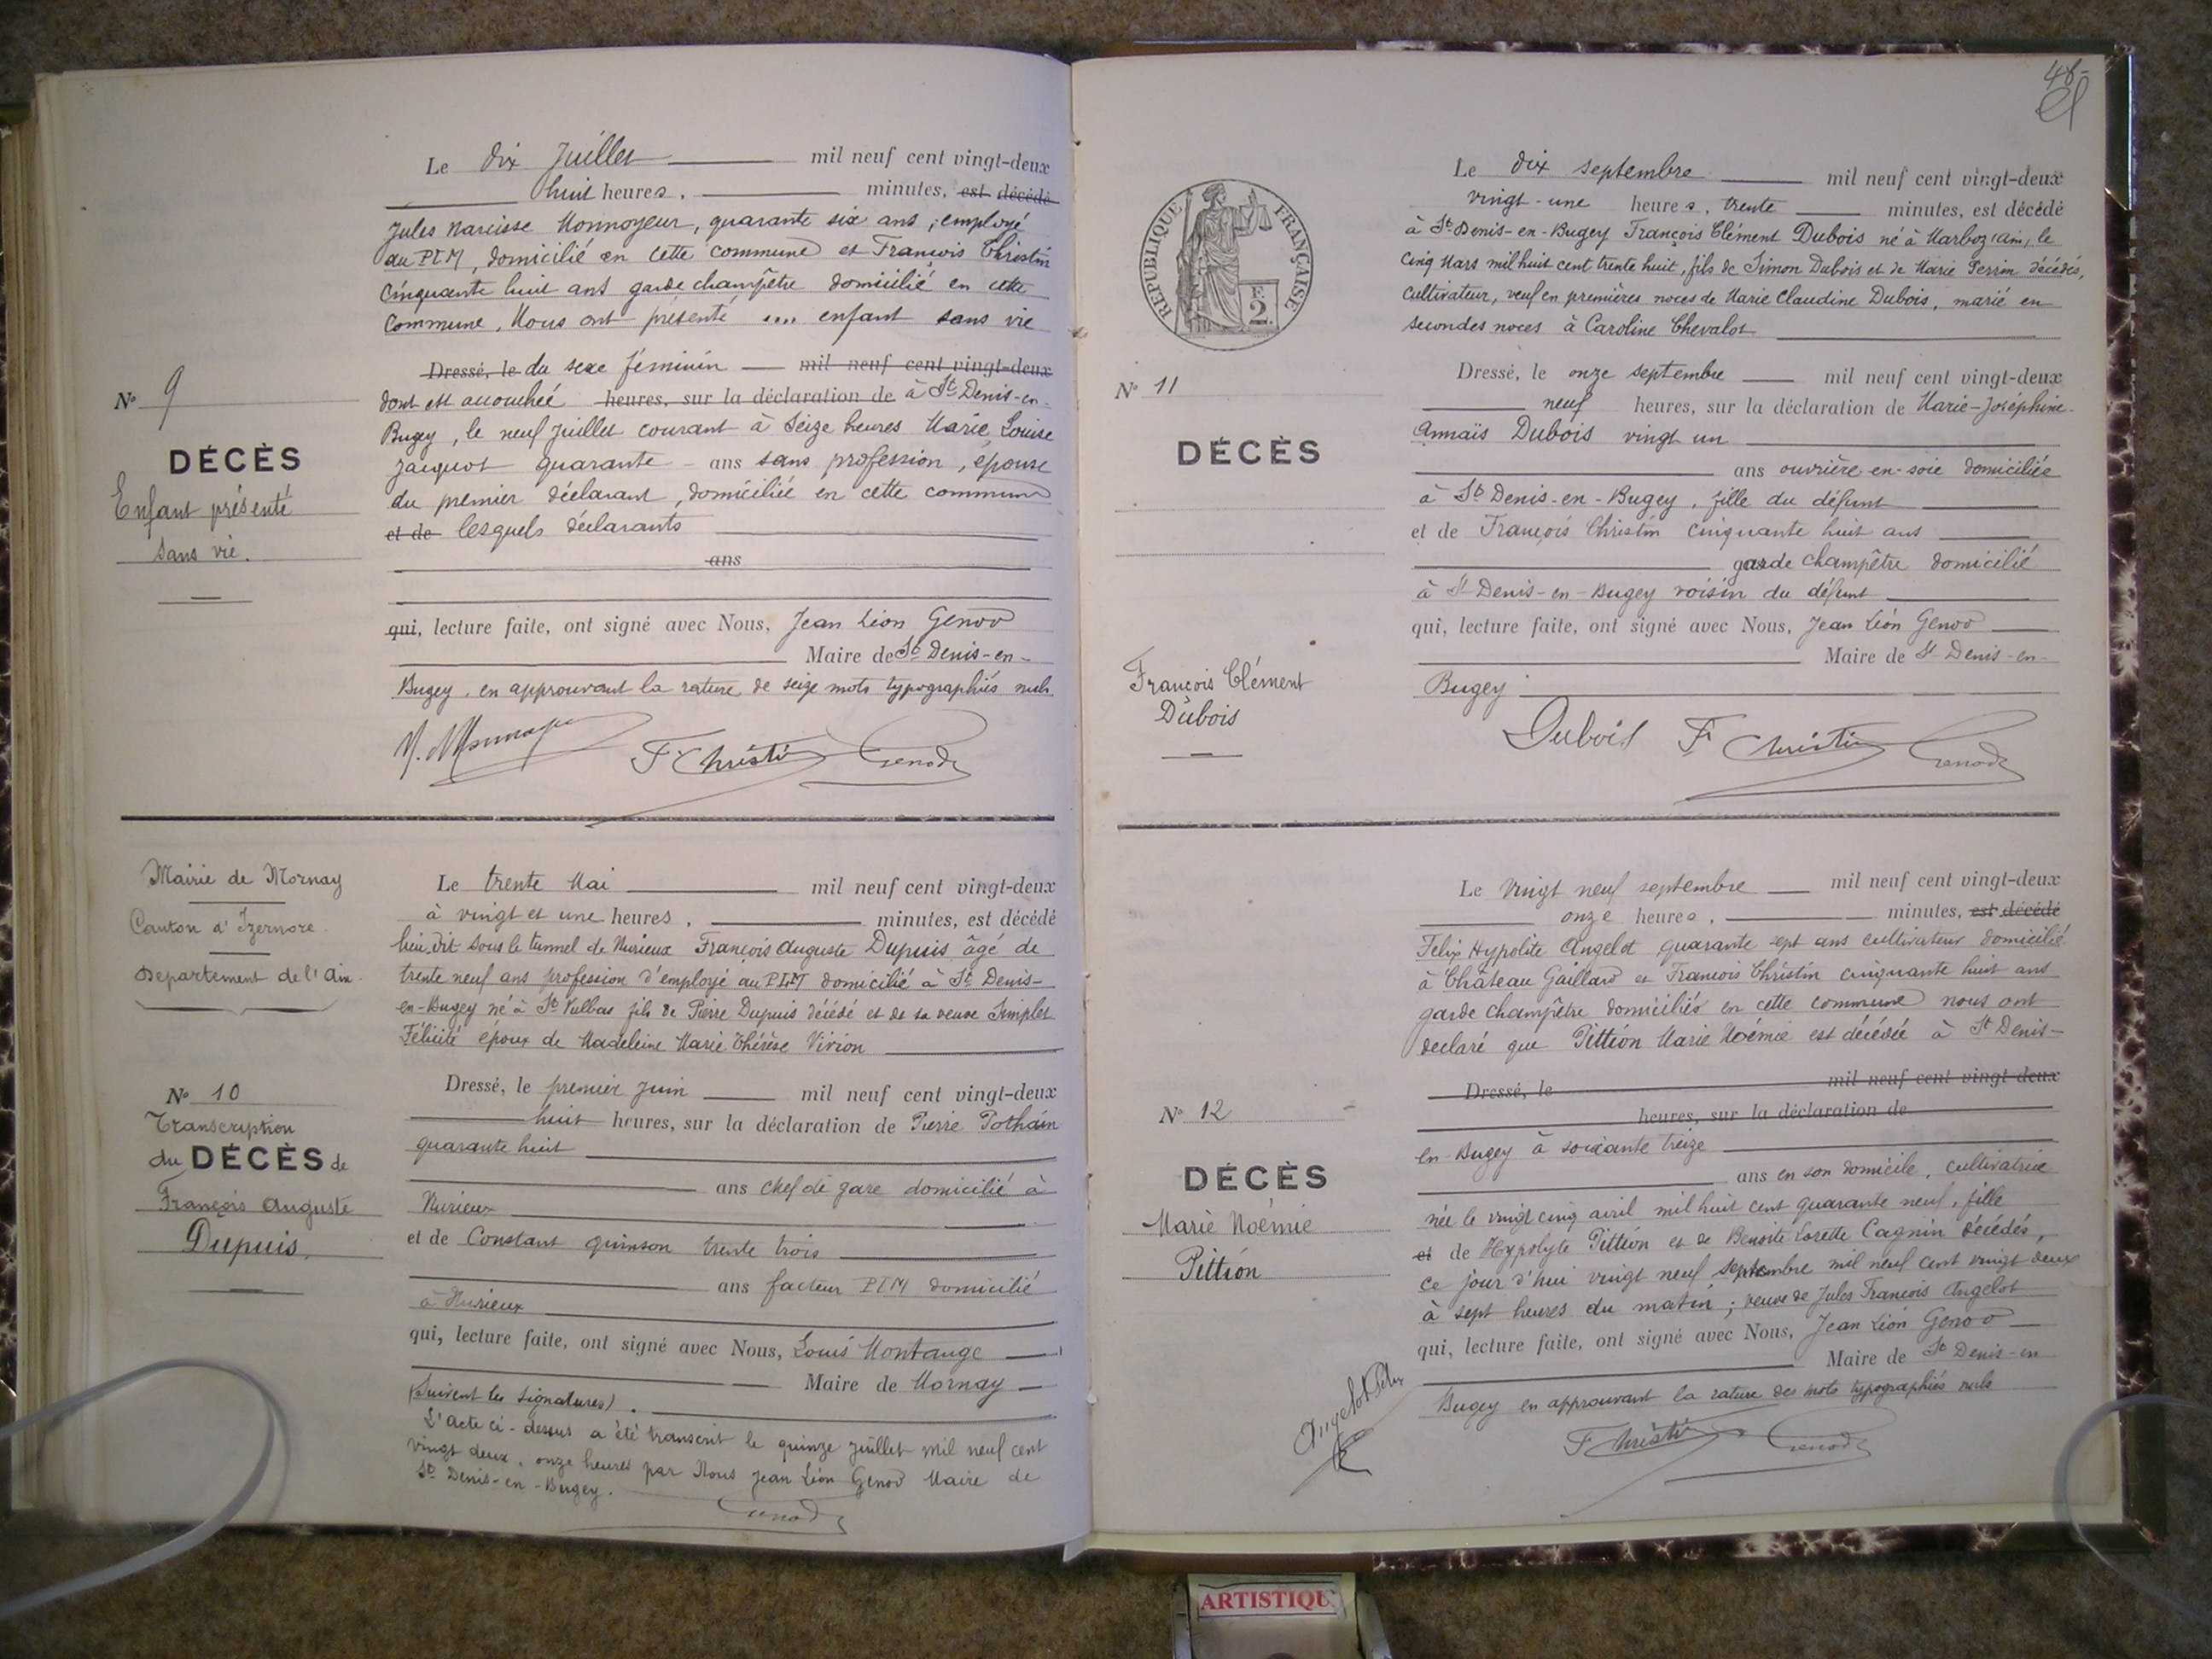 Le dix Juillet mil neuf cent vingt-deux
huit heures, minutes, est décédé
Jules Narcisse Monnoyeur, quarante six ans, employé
au PLM, domicilié en cette commune et François Christin
cinquante huit ans garde champêtre domicilié en cette
commune, Nous ont présenté .... enfant sans vie
Dressé, le du sexe féminin mil neuf cent vingt-deux
dont est accouchée heures, sur la déclaration de à St Denis-en-
Bugey, le neuf Juillet courant à seize heures Marie Louise
Jacquot quarante ans sans profession, épouse
du premier déclarant, domiciliée en cette commune
et de lesquels déclarants
ans
qui, lecture faite, ont signé avec Nous, Jean Léon Genod
Maire de St Denis-en-
Bugey, en approuvant la rature de seize mots typographiés nuls
F Christin Genod
N° 9
DÉCÈS
Enfant présenté
sans vie.
Mairie de Mornay
Canton d'Izernore
Département de l'Ain
N° 10
Transcription
du DÉCÈS de
François Auguste
Dupuis.
Le trente Mai mil neuf cent vingt-deux
à vingt et une heures, minutes, est décédé
lieu dit sous le tunnel de Nurieux François Auguste Dupuis âgé de
trente neuf ans profession d'employé au PLM domicilié à St Denis-
en-Bugey né à St Vulbas fils de Pierre Dupuis décédé et de sa veuve Simplet
Félicité époux de Madeleine Marie Thérèse Virion
Dressé, le premier Juin mil neuf cent vingt-deux
huit heures, sur la déclaration de Pierre Pothain
quarante huit
ans chef de gare domicilié à
Nurieux
et de Constant Quinson trente trois
ans facteur PLM domicilié
à Nurieux
qui, lecture faite, ont signé avec Nous, Louis Montange
Maire de Mornay
(Suivent les signatures).
L'acte ci-dessus a été transcrit le quinze Juillet mil neuf cent
vingt deux, onze heures par Nous Jean Léon Genod Maire de
St Denis-en-Bugey.
Genod
48
RÉPUBLIQUE FRANÇAISE
2
N° 11
DÉCÈS
François Clément
Dubois
Le dix septembre mil neuf cent vingt-deux
vingt-une heures, trente minutes, est décédé
à St Denis-en-Bugey François Clément Dubois né à Marboz (Ain), le
cinq Mars mil huit cent trente huit, fils de Simon Dubois et de Marie Perrin décédés,
cultivateur, veuf en premières noces de Marie Claudine Dubois, marié en
secondes noces à Caroline Chevalot
Dressé, le onze septembre mil neuf cent vingt-deux
neuf heures, sur la déclaration de Marie-Joséphine-
Annaïs Dubois vingt un
ans ouvrière en-soie domiciliée
à St Denis-en-Bugey, fille du défunt
et de François Christin cinquante huit ans
garde champêtre domicilié
à St Denis-en-Bugey voisin du défunt
qui, lecture faite, ont signé avec Nous, Jean Léon Genod
Maire de St Denis-en-
Bugey
Dubois F Christin Genod
N° 12
DÉCÈS
Marie Noémie
Pittion
Le vingt neuf septembre mil neuf cent vingt-deux
onze heures, minutes, est décédé
Felix Hypolite Angelot quarante sept ans cultivateur domicilié
à Château Gaillard et François Christin cinquante huit ans
garde champêtre domiciliés en cette commune nous ont
declaré que Pittion Marie Noémie est décédée à St Denis-
Dressé, le mil neuf cent vingt-deux
heures, sur la déclaration de
en-Bugey à soixante treize
ans en son domicile, cultivatrice
née le vingt cinq avril mil huit cent quarante neuf, fille
et de Hypolyte Pittion et de Benoite Lorette Cagnin décédés,
ce jour d'hui vingt neuf septembre mil neuf cent vingt deux
à sept heures du matin; veuve de Jules François Angelot
qui, lecture faite, ont signé avec Nous, Jean Léon Genod
Maire de St Denis-en
Bugey en approuvant la rature des mots typographiés nuls
Angelot Felix
F Christin Genod
ARTISTIQU